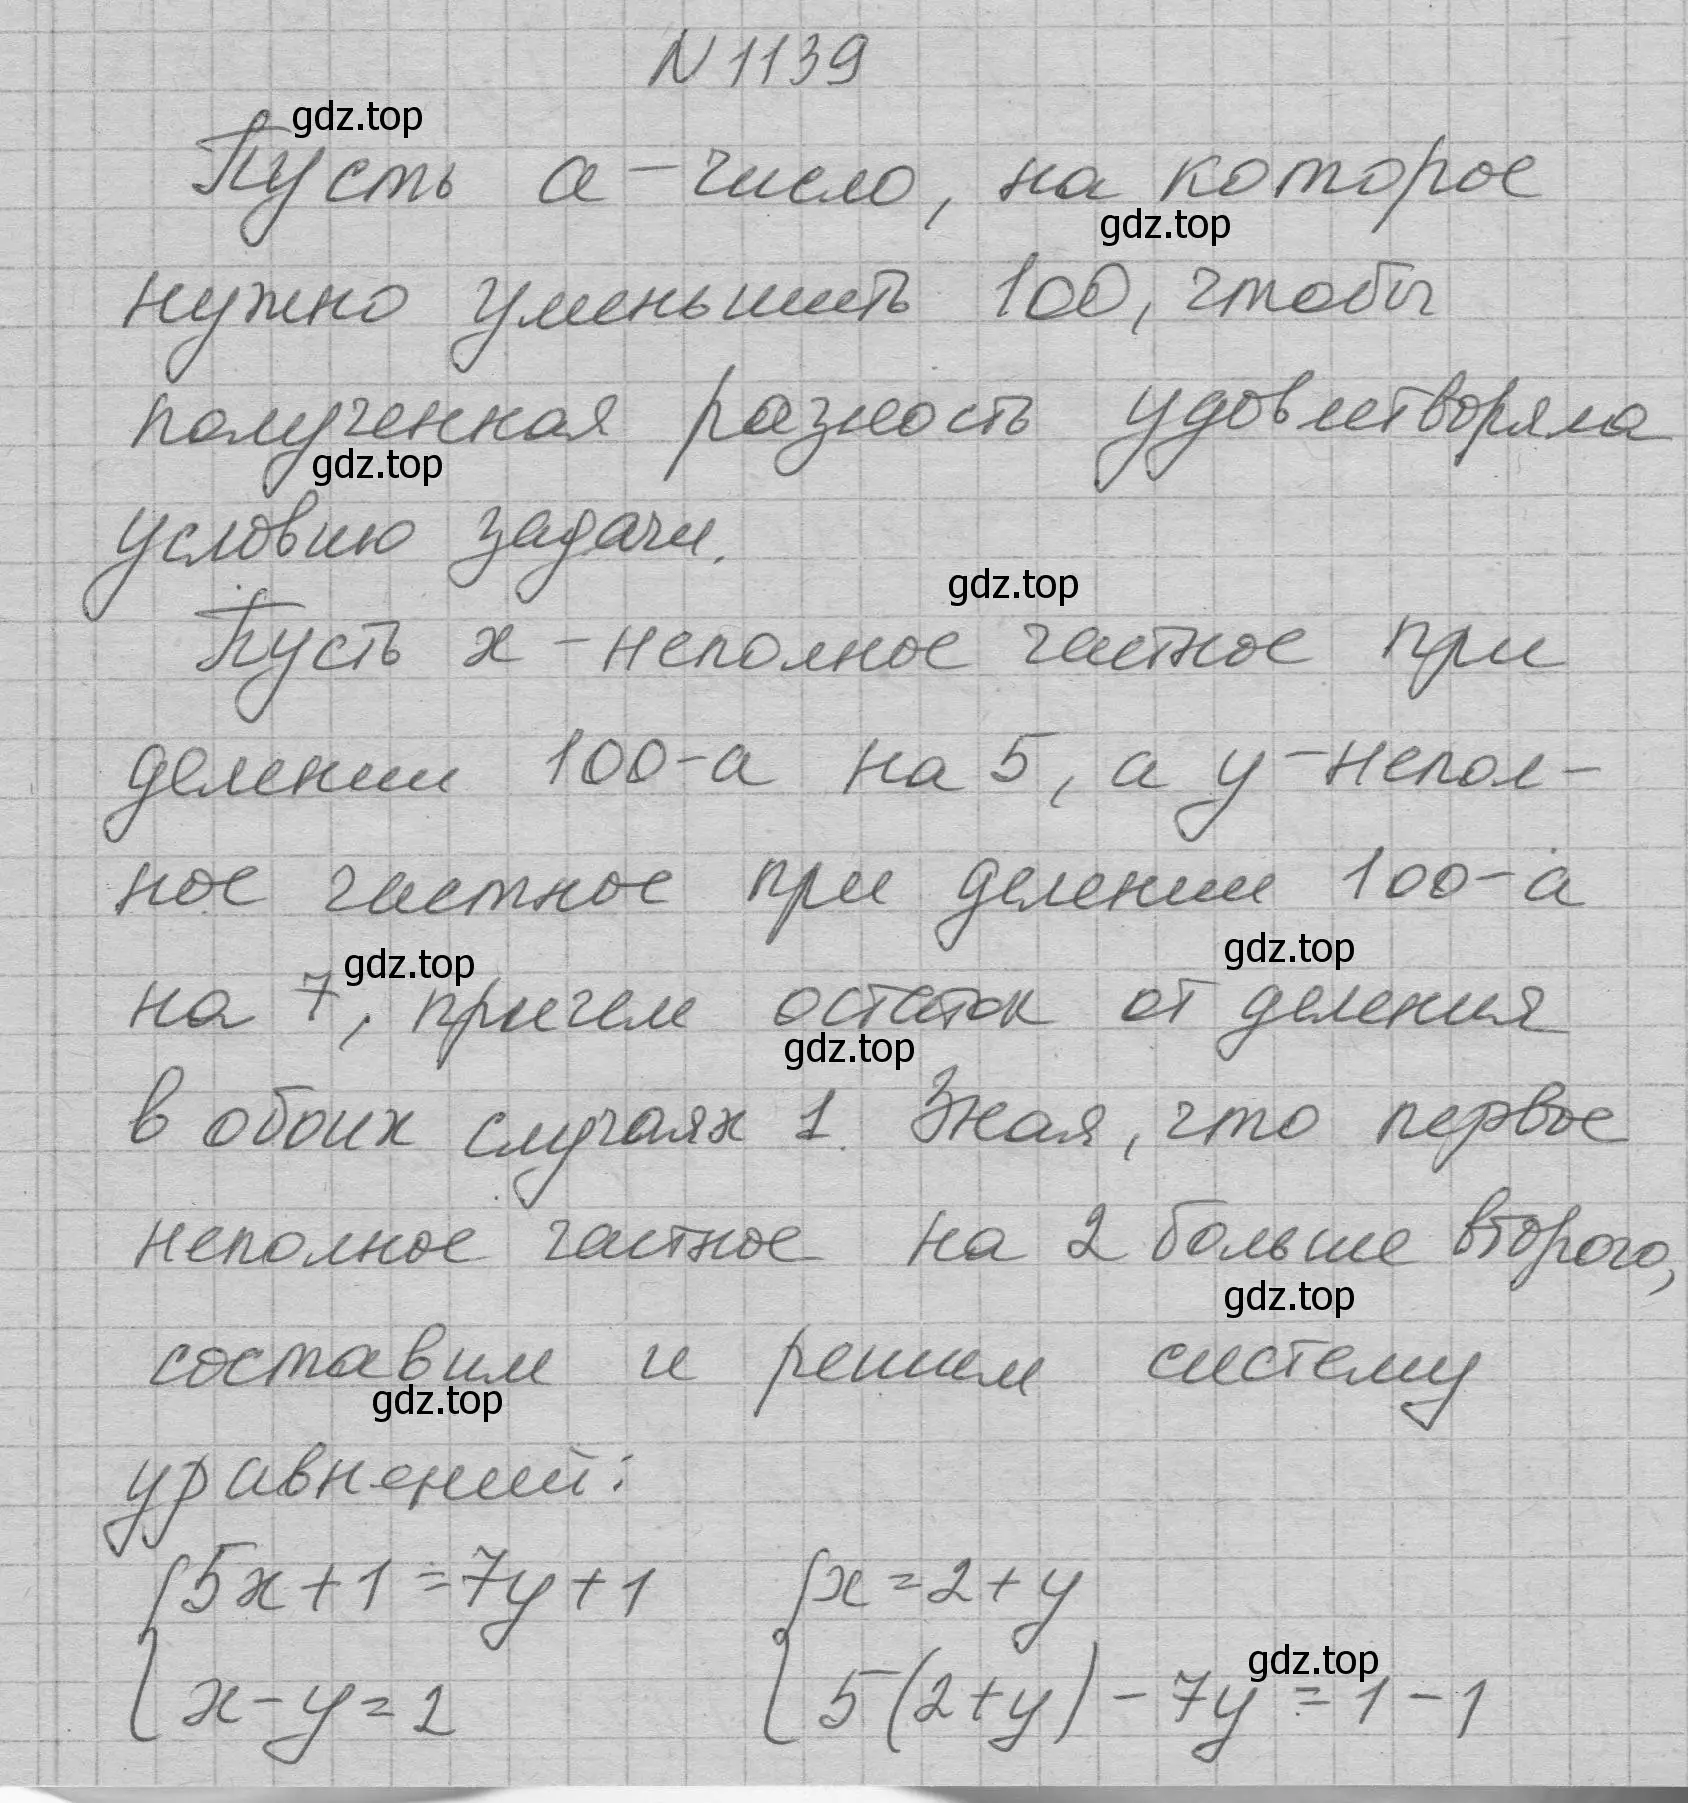 N 1139
gdz.top
Пусть a - число, на которое
gdz.top
нужно уменьшить 100, чтобы
полученная разность удовлетворяла
gdz.top
условию задачи.
gdz.top
Пусть x - неполное частное при
делении 100-a на 5, а y - непол-
ное частное при делении 100-a
gdz.top
gdz.top
на 7, причем остаток от деления
gdz.top
в обоих случаях 1. Зная, что первое
неполное частное на 2 больше второго,
gdz.top
составим и решим систему
gdz.top
уравнений:
{5x+1=7y+1 {x=2+y
gdz.top
x-y=2 5(2+y)-7y=1-1